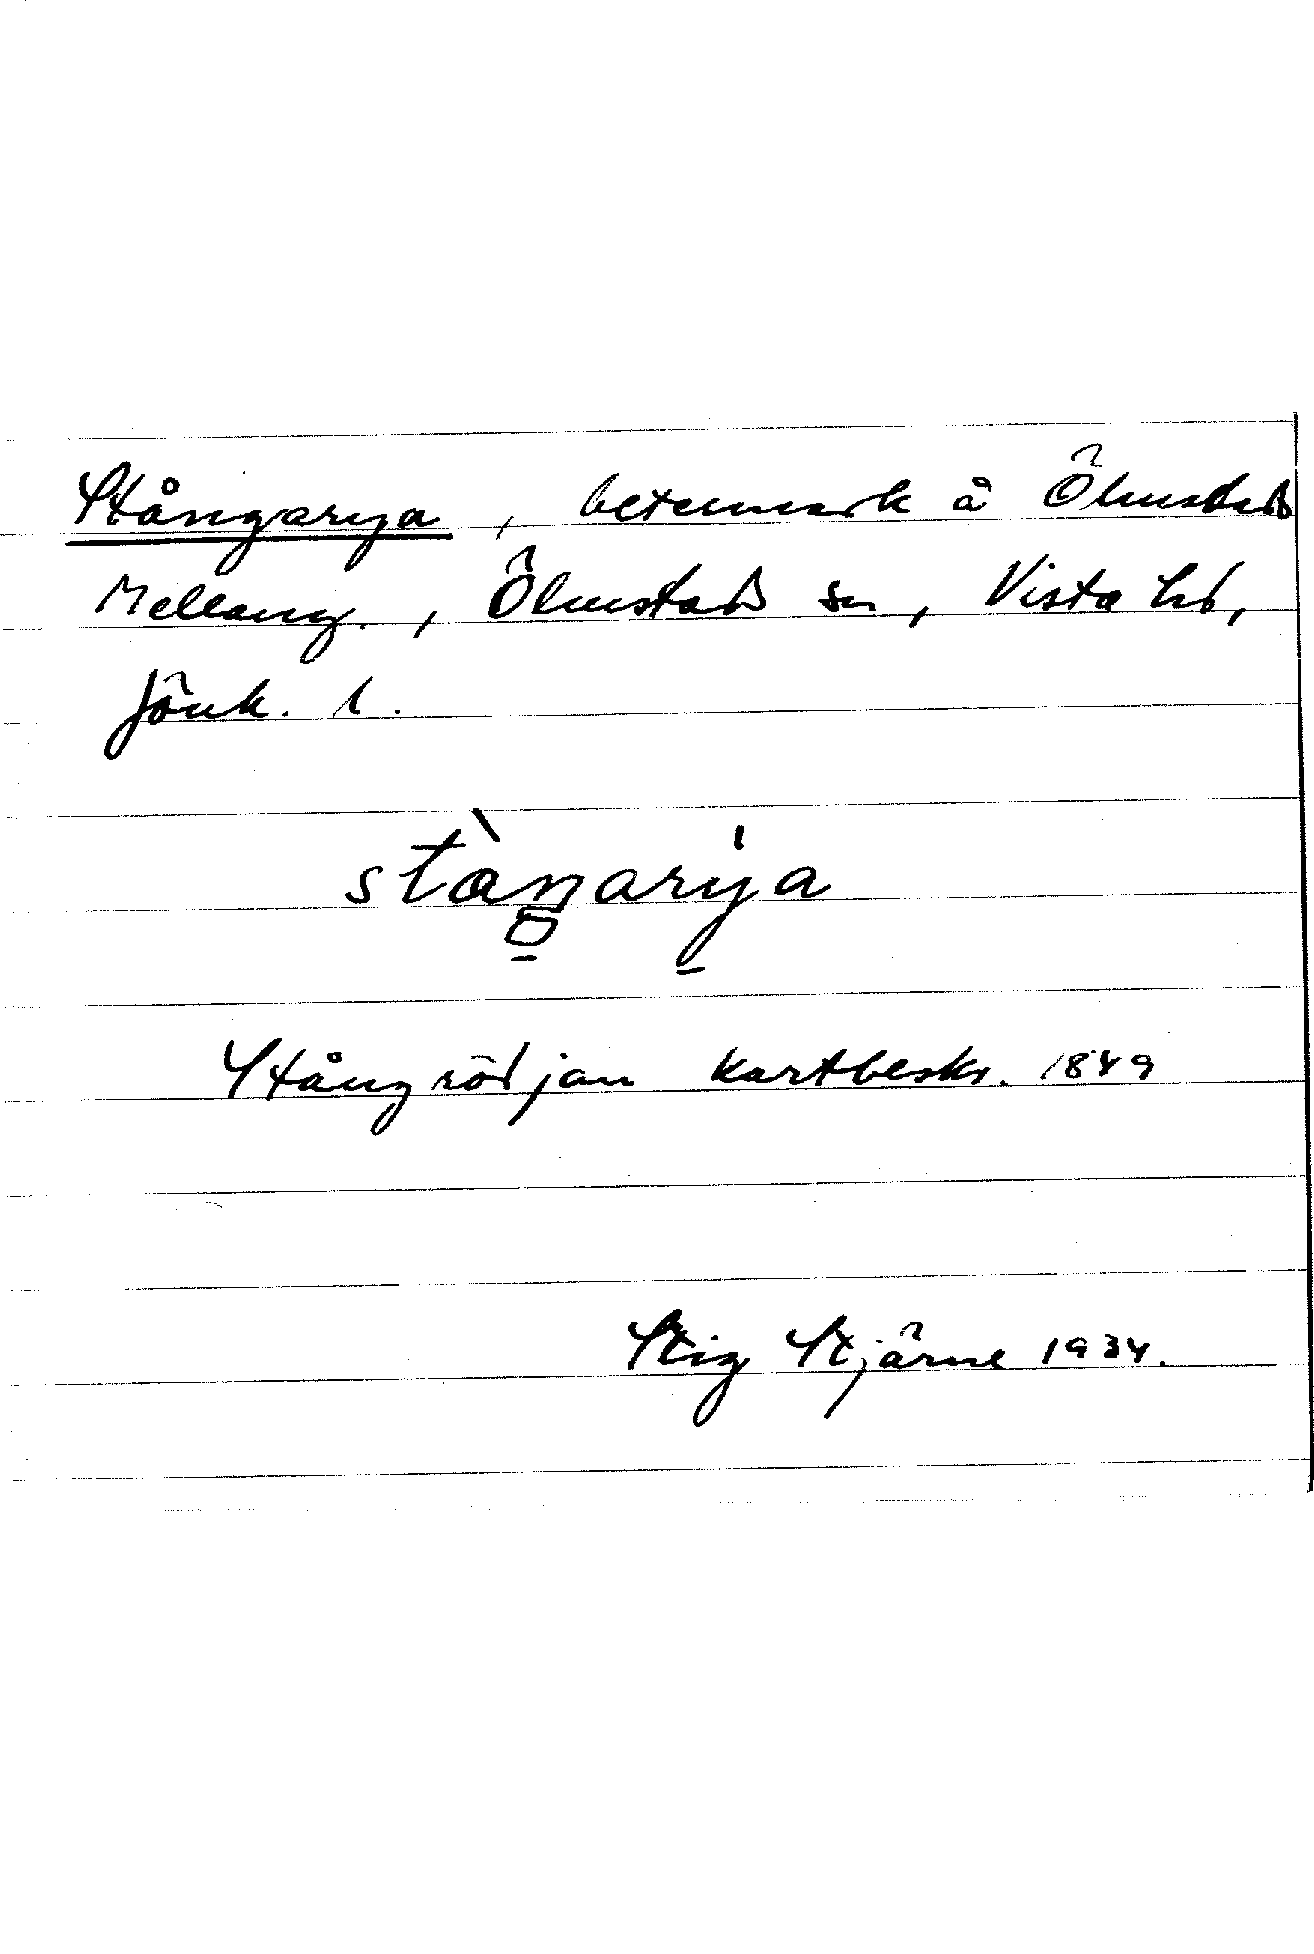 Stångarya, betesmark å Ölmstads
Mellang., Ölmstads sn, Vista hd,
Jönk. l.
stàŋarýa
Stångrödjan kartbeskr. 1849
Stig Stjärne 1934.